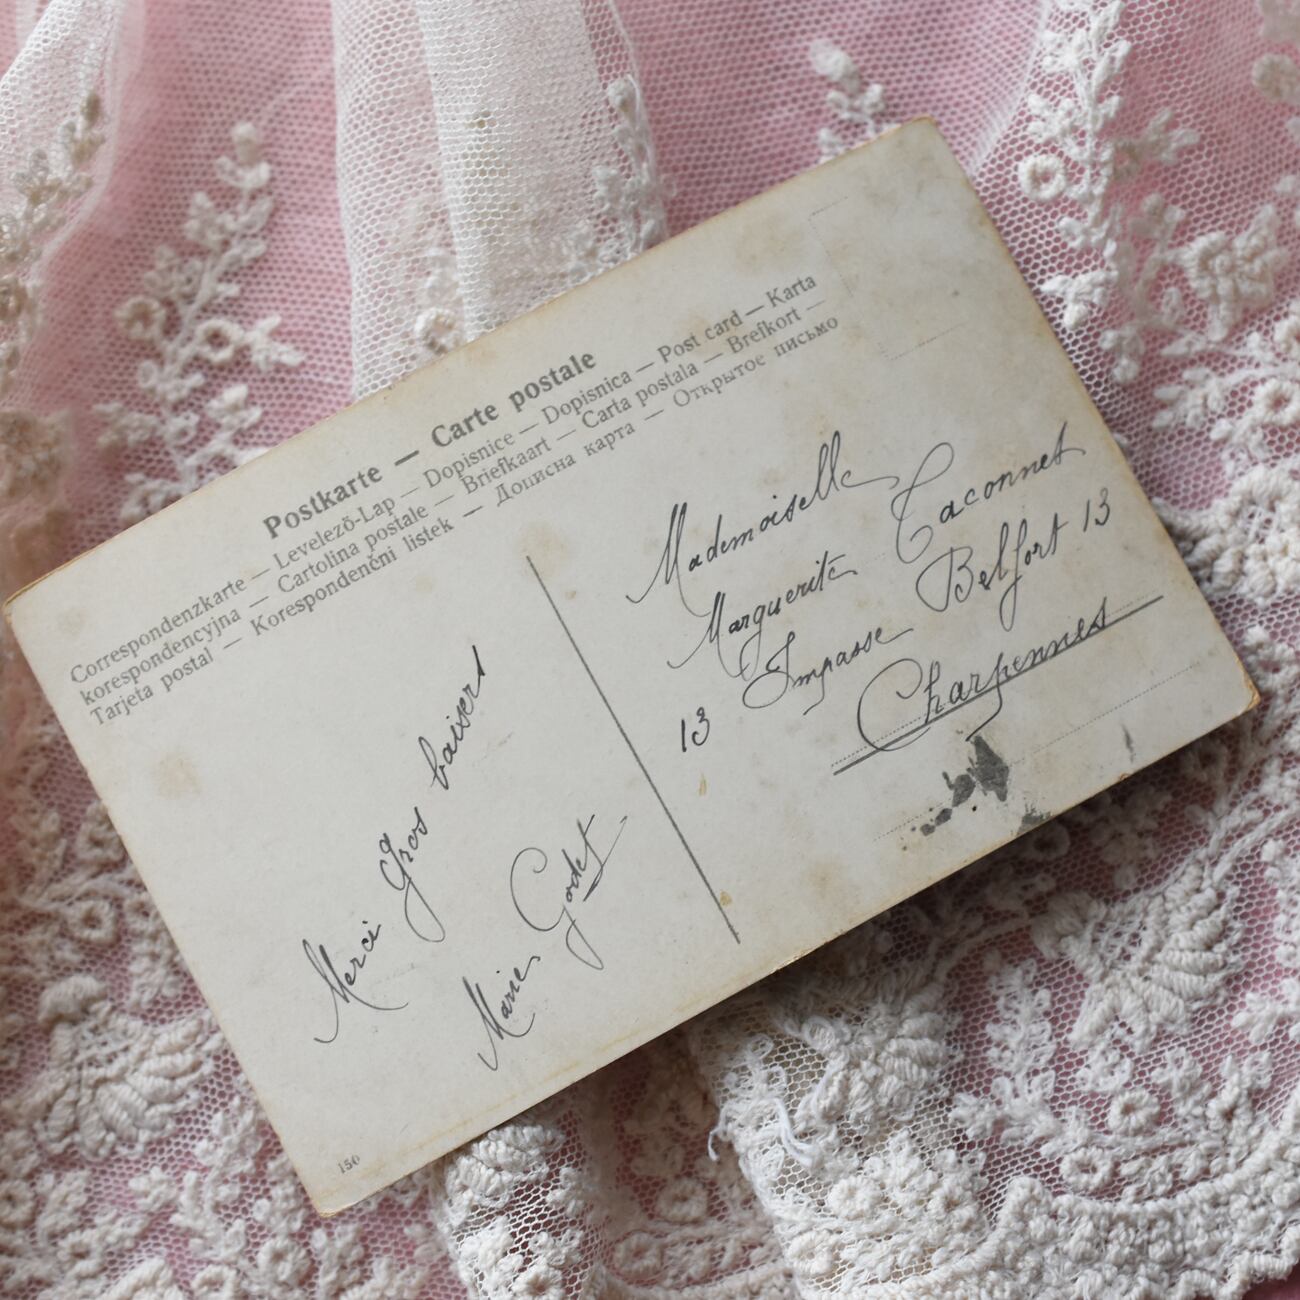 Postkarte — Carte postale
Correspondenzkarte — Levelező-Lap — Dopisnice — Dopisnica — Post card — Karta
korespondencyjna — Cartolina postale — Briefkaart — Carta postala — Brefkort —
Tarjeta postal — Korespondenční listek — Дописна карта — Открытое письмо
Merci Gros baisers
Marie Godet
Mademoiselle
Marguerite Taconnet
13 Impasse Belfort 13
Charpennes
150